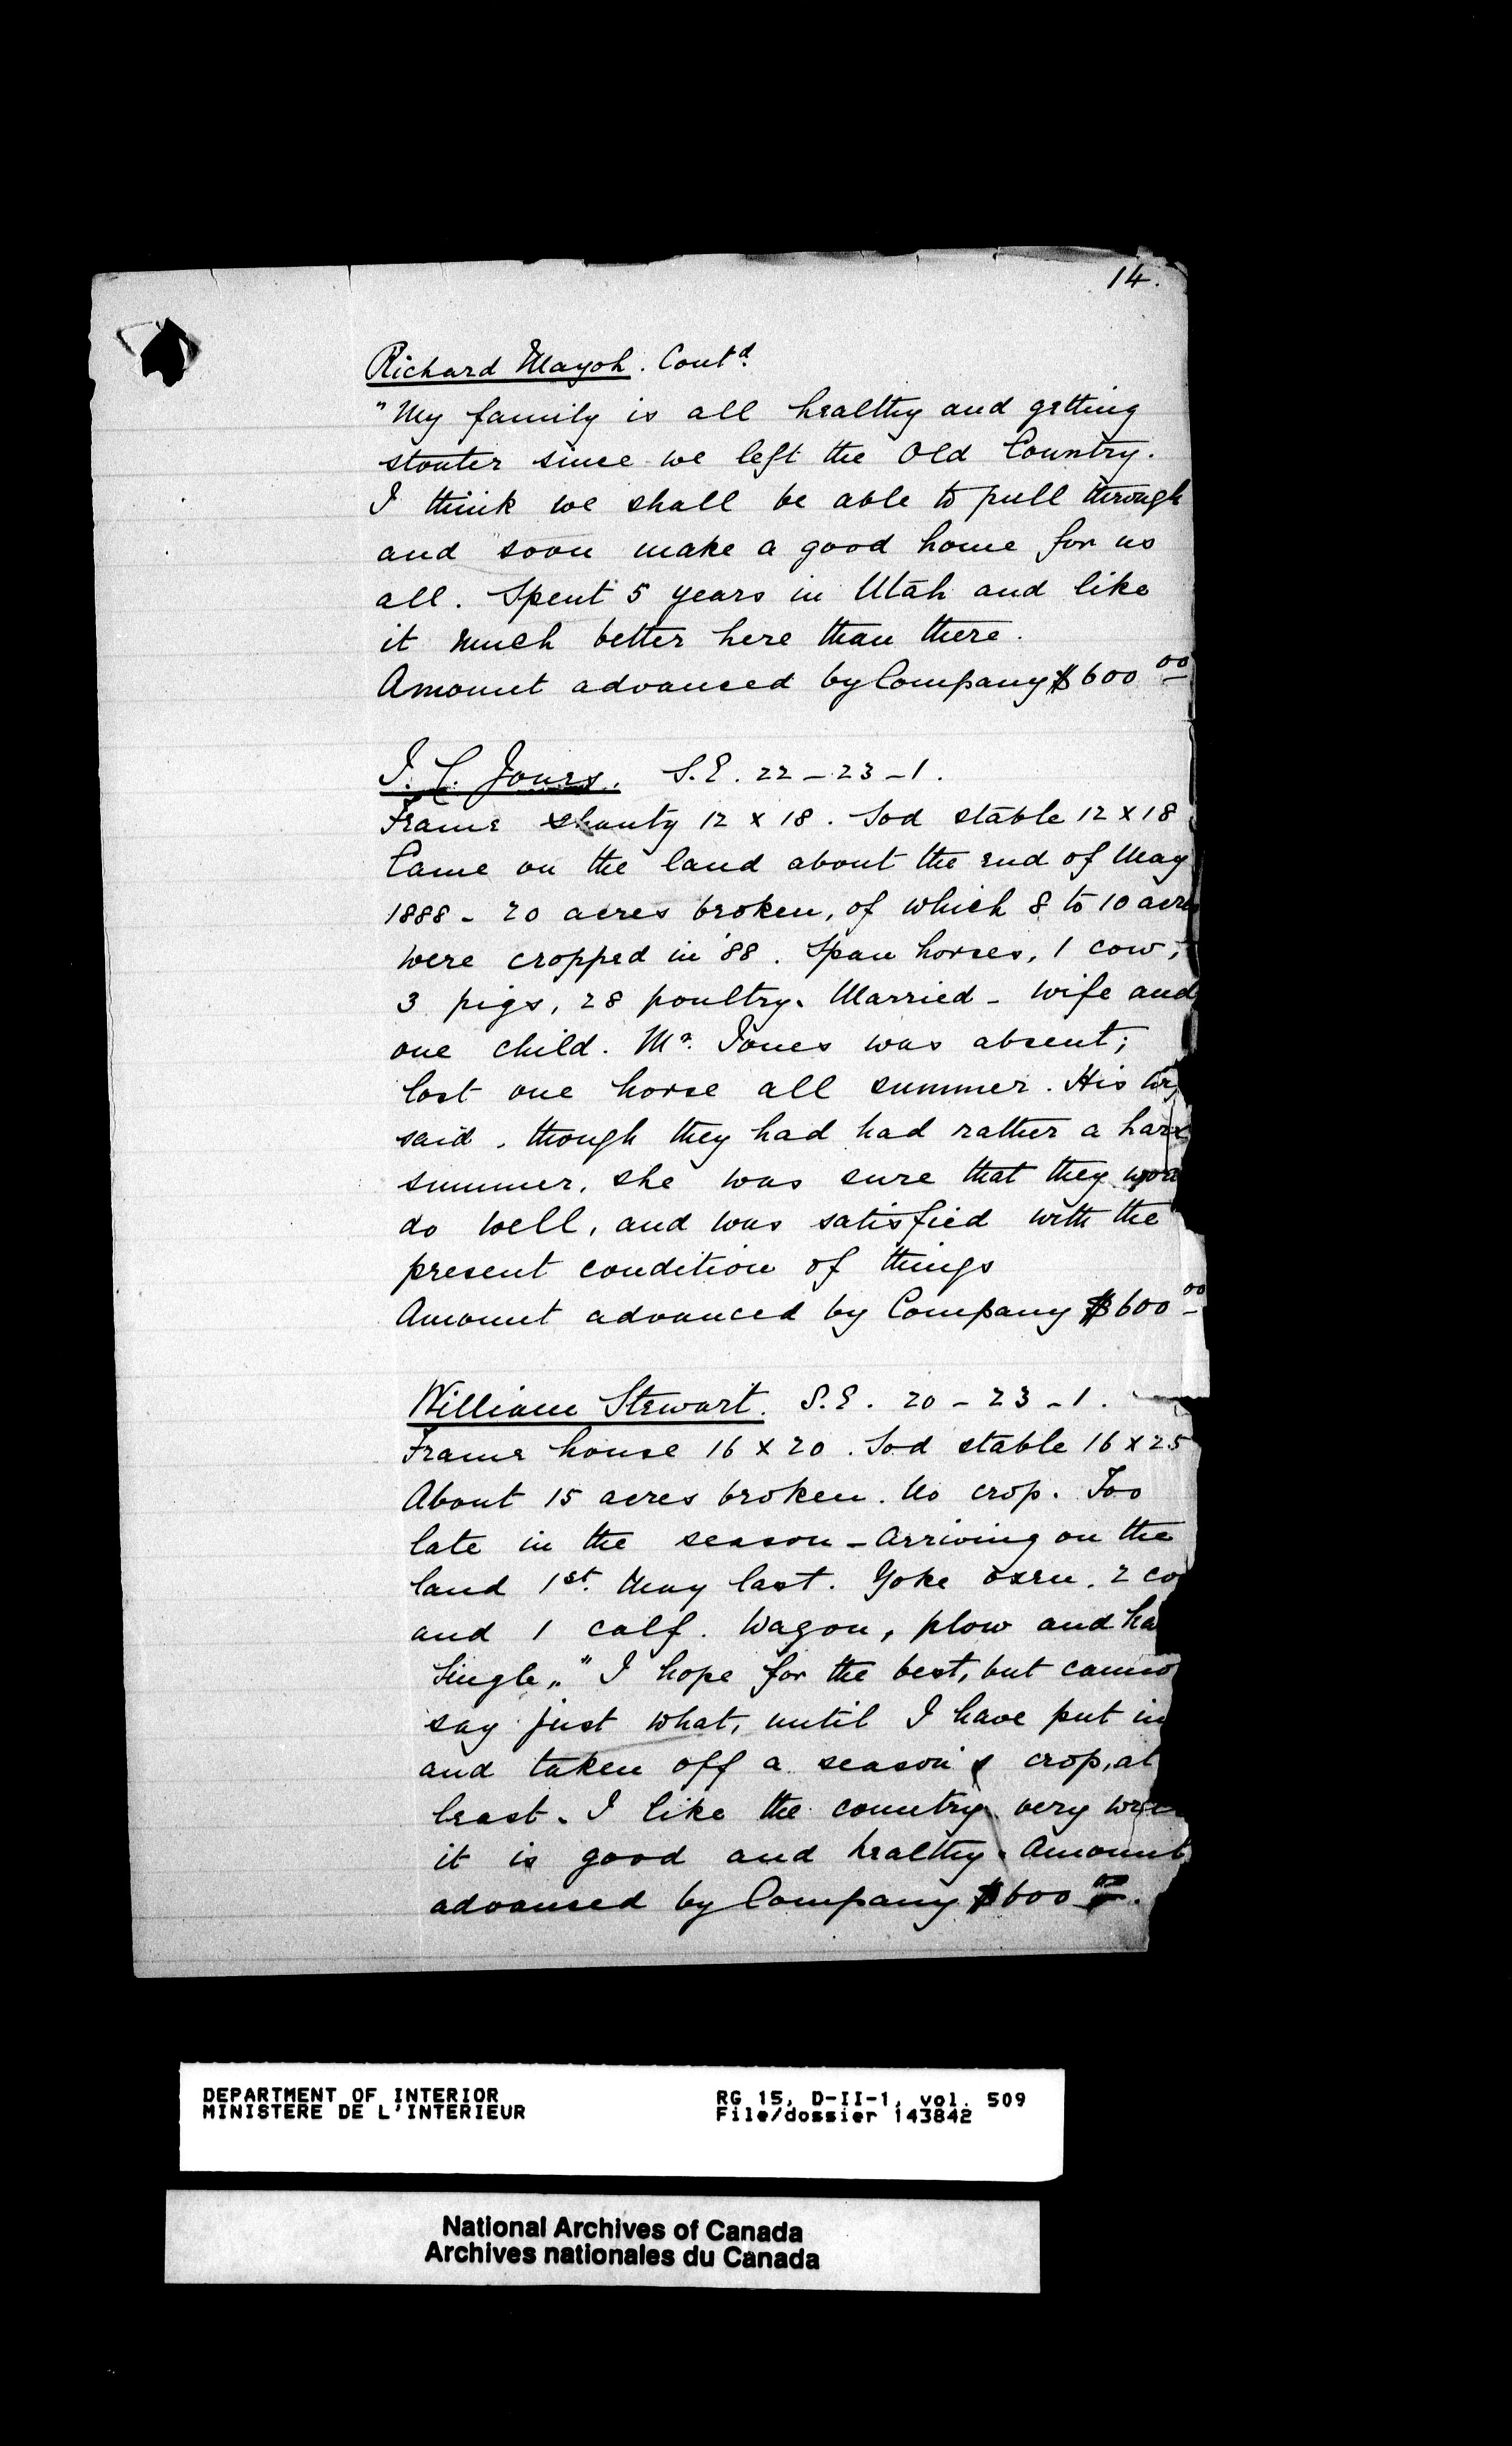 14.
Richard Mayoh. Contd.
"My family is all healthy and getting
stouter since we left the Old Country.
I think we shall be able to pull through
and soon make a good home for us
all. Spent 5 years in Utah and like
it much better here than there.
Amount advanced by Company $600 00
J. L. Jones. S.E. 22-23-1.
Frame shanty 12 x 18. Sod stable 12 x 18
Came on the land about the end of May
1888 - 20 acres broken, of which 8 to 10 acre
were cropped in '88. Span horses, 1 cow,
3 pigs, 28 poultry. Married - wife and
one child. Mr. Jones was absent;
lost one horse all summer. His
said, though they had had rather a hard
summer, she was sure that they wou
do well, and was satisfied with the
present condition of things
Amount advanced by Company $600 00
William Stewart. S.E. 20-23-1.
Frame house 16 x 20. Sod stable 16 x 25
About 15 acres broken. No crop. Too
late in the season - Arriving on the
land 1st. May last. Yoke oxen. 2 co
and 1 calf. Wagon, plow and ha
Single. "I hope for the best, but canno
say just what, until I have put in
and taken off a season's crop, at
least. I like the country very we
it is good and healthy. Amount
advanced by Company $600 00.
DEPARTMENT OF INTERIOR RG 15, D-II-1, vol. 509
MINISTERE DE L'INTERIEUR File/dossier 143842
National Archives of Canada
Archives nationales du Canada